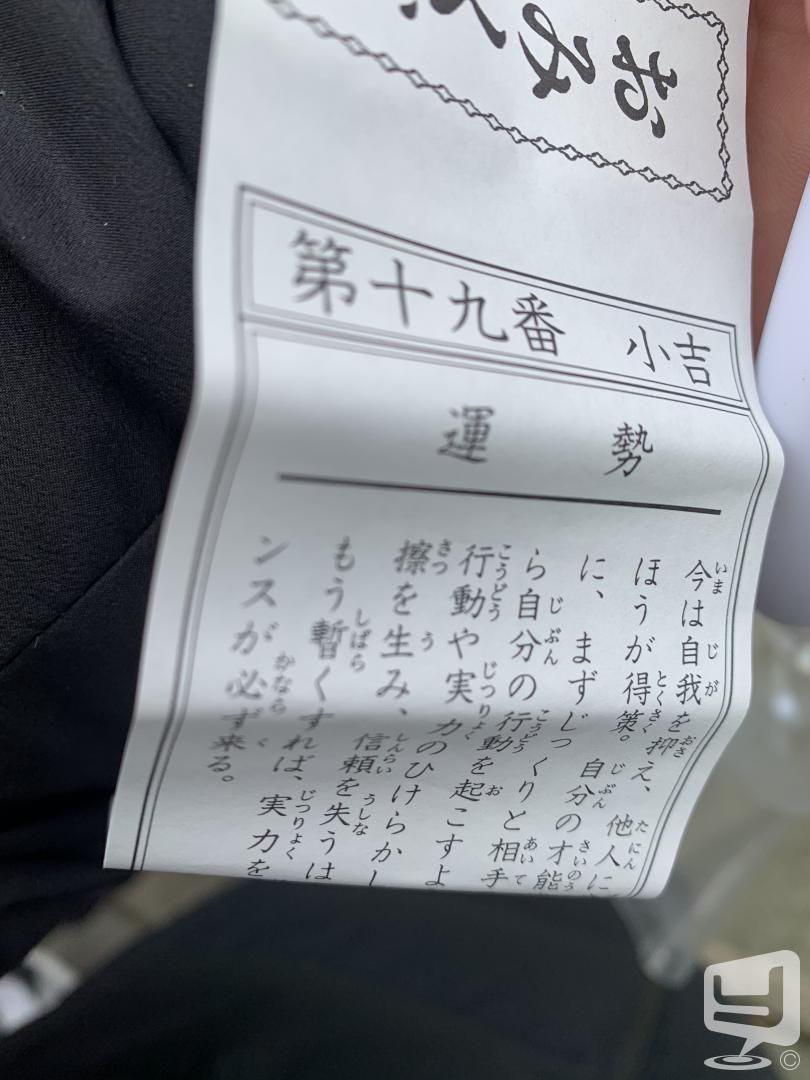 おみ
第十九番 小吉
運勢
今は自我を抑え、他人に
ほうが得策。自分の才能
に、まずじっくりと相手
ら自分の行動を起こすよ
行動や実力のひけらかし
擦を生み、信頼を失うは
もう暫くすれば、実力を
ンスが必ず来る。